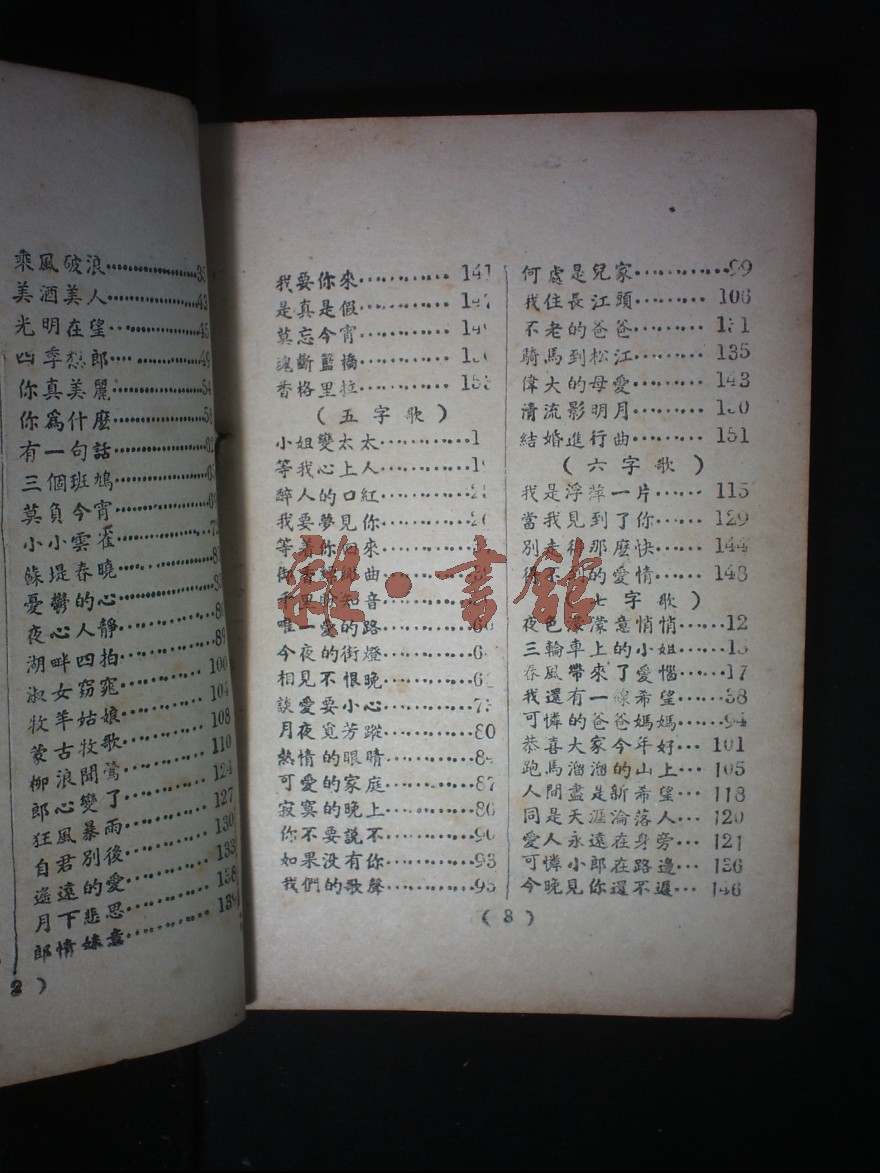 乘風破浪
美酒美人
光明在望
四季想郎
你真美麗
你為什麼
有一句話
三個班鳩
莫負今宵
小小雲雀
蘇堤春曉
憂鬱的心
夜心人靜
湖畔四拍
淑女窈窕 100
牧羊姑娘 104
蒙古牧歌 108
柳浪聞鶯 110
郎心變了 124
狂風暴雨 127
自君別後 130
遙遠的愛 133
月下悲思 138
郎情妹意 139
2 )
我要你來 141
是真是假 147
莫忘今宵
魂斷籃橋
香格里拉
( 五 字 歌 )
小姐變太太
等我心上人
醉人的口紅
我要夢見你
等着你回來
曲
知音
唯一愛的路
今夜的街燈
相見不恨晚
談愛要小心
月夜覓芳蹤 80
熱情的眼睛
可愛的家庭 87
寂寞的晚上
你不要說不
如果沒有你 93
我們的歌聲 95
何處是兒家 99
我住長江頭 106
不老的爸爸 131
騎馬到松江 135
偉大的母愛 143
清流影明月
結婚進行曲 151
( 六 字 歌 )
我是浮萍一片 115
當我見到了你 129
別走得那麼快 144
得不到的愛情 148
( 七 字 歌 )
夜色濛濛意悄悄 12
三輪車上的小姐
春風帶來了愛惱 17
我還有一線希望 38
可憐的爸爸媽媽 94
恭喜大家今年好 101
跑馬溜溜的山上 105
人間盡是新希望 118
同是天涯淪落人 120
愛人永遠在身旁 121
可憐小郎在路邊
今晚見你還不遲 146
( 3 )
雜·書館